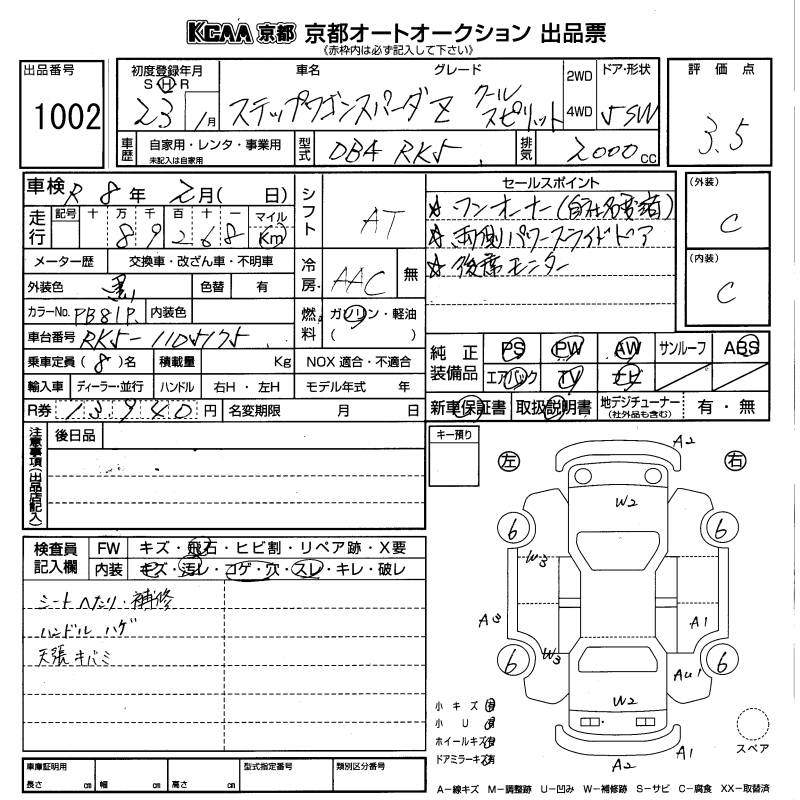 KCAA 京都 京都オートオークション 出品票
《赤枠内は必ず記入して下さい》
出品番号
1002
初度登録年月
S H R
23 1月
車名
グレード
ステップワゴンスパーダ Z クール
スピリット
2WD
4WD
ドア・形状
5 SW
評価点
3.5
車歴
自家用・レンタ・事業用
未記入は自家用
型式
DBA RK5
排気
2000 CC
車検 R 8年 2月( 日)
走行
記号 十 万 千 百 十 一 マイル
8 9 2 6 8 Km
メーター歴 交換車・改ざん車・不明車
外装色 黒 色替 有
カラーNo. PB81P 内装色
車台番号 RK5-1105175
乗車定員 (8)名 積載量 Kg
輸入車 ディーラー・並行 ハンドル 右H・左H
R券 13940円 名変期限 月 日
シフト
AT
冷房
AAC 無
燃料
ガソリン・軽油
( )
NOX 適合・不適合
モデル年式 年
セールスポイント
☆ ワンオーナー(自社名変済)
☆ 両側パワースライドドア
☆ 後席モニター
(外装)
C
(内装)
C
純正装備品
PS PW AW サンルーフ ABS
エアバック TV ナビ
新車保証書 取扱説明書 地デジチューナー 有・無
(社外品も含む)
注意事項(出品店記入)
後日品
キー預り
左
右
検査員記入欄
FW キズ・飛石・ヒビ割・リペア跡・X要
内装 キズ・汚レ・コゲ・穴・スレ・キレ・破レ
シートヘたり・補修
ハンドル ハゲ
天張キバミ
A2
W2
6 6
W3
A3 A1
6 W3 AU1 6
W2
A2 A1
小キズ有
小 U 有
ホイールキズ有
ドアミラーキズ有
スペア
車庫証明用
長さ cm 幅 cm 高さ cm
型式指定番号
類別区分番号
A-線キズ M-調整跡 U-凹み W-補修跡 S-サビ C-腐食 XX-取替済